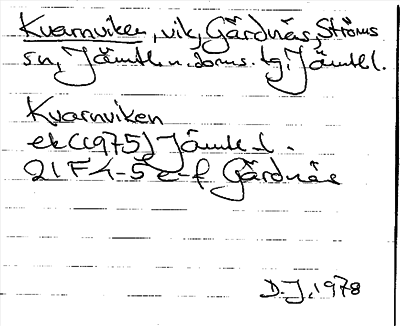 Kvarnviken, vik, Gärdnäs, Ströms
sn, Jämtl. n. doms. tg, Jämtl l.
Kvarnviken
ek (1975) Jämtl. l.
21 F 4-5 e-f Gärdnäs
D.J. 1978